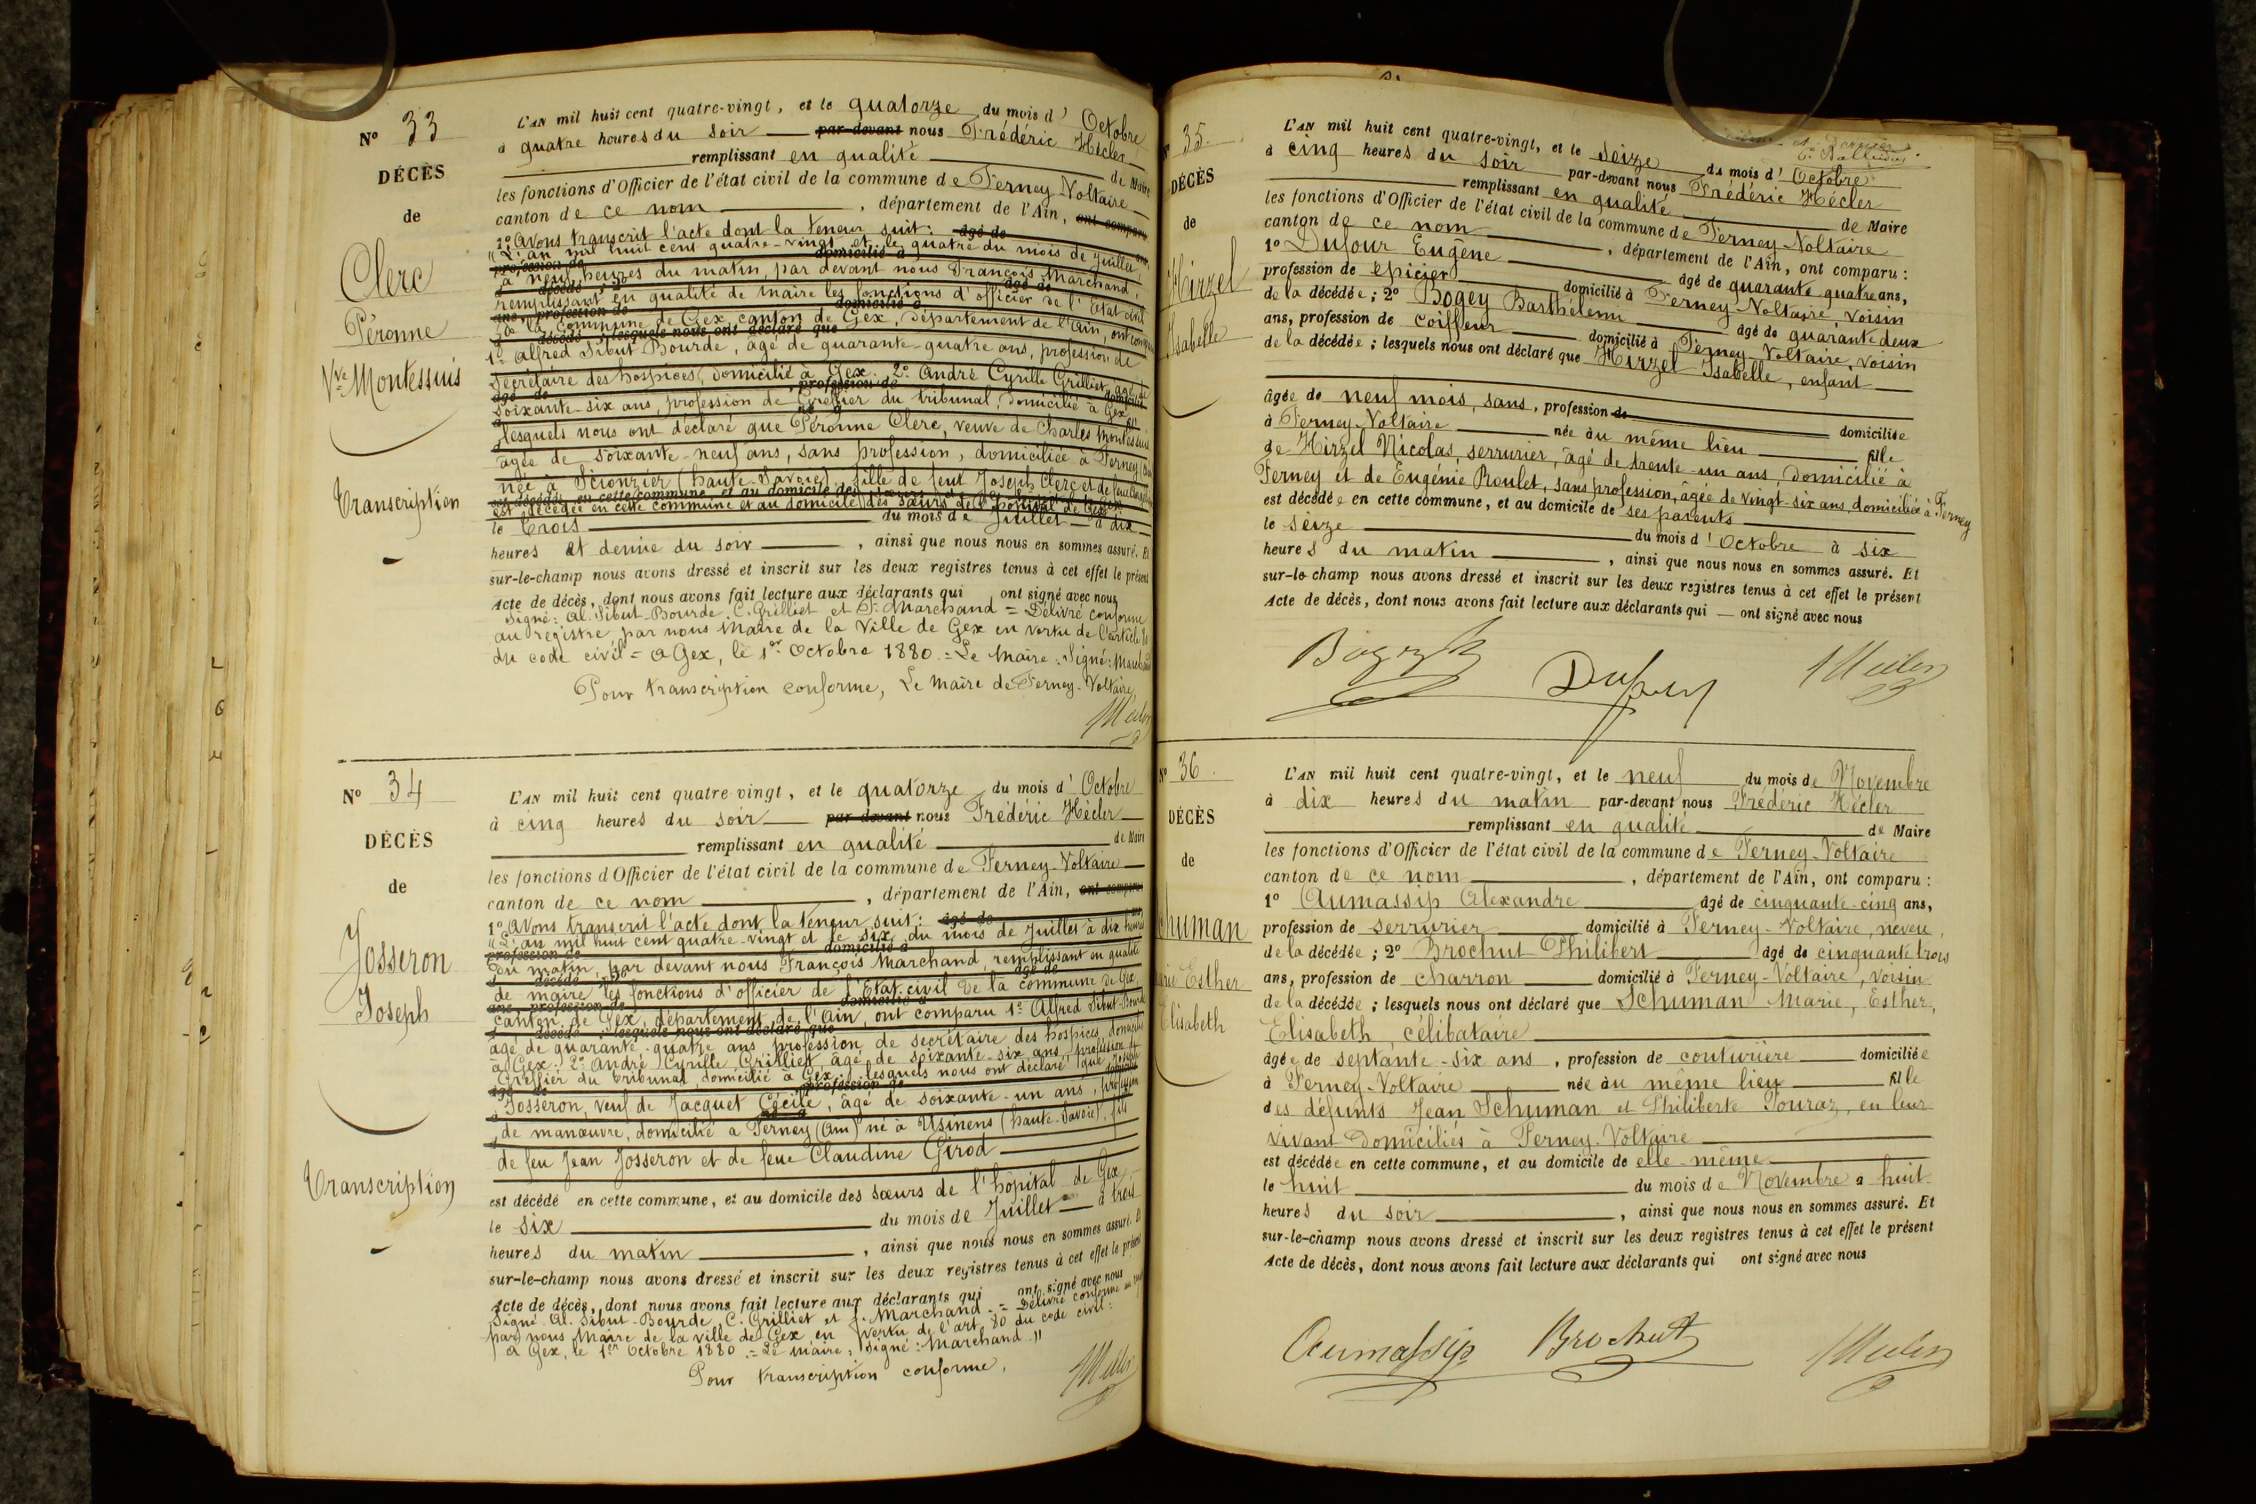 N° 33
DÉCÈS
de
Clerc
Péronne
Vve Montessuis
Transcription
L'AN mil huit cent quatre-vingt, et le quatorze du mois d' Octobre
à quatre heures du soir par-devant nous Frédéric Hécler
remplissant en qualité de Maire
les fonctions d'Officier de l'état civil de la commune de Ferney Voltaire
canton de ce nom, département de l'Ain, ont comparu
1° Avons transcrit l'acte dont la teneur suit: âgé de
"L'an mil huit cent quatre-vingt et le quatre du mois de juillet
à neuf heures du matin, par devant nous François Marchand,
remplissant en qualité de maire les fonctions d'officier de l'Etat civil
de la commune de Gex, canton de Gex, département de l'Ain, ont comparu
1° Alfred Sibut Bourde, âgé de quarante-quatre ans, profession de
Secrétaire des hospices, domicilié à Gex. 2° André Cyrille Grilliet, âgé de
soixante-six ans, profession de Greffier du tribunal, domicilié à Gex
lesquels nous ont déclaré que Péronne Clerc, veuve de Charles Montessuis
âgée de soixante-neuf ans, sans profession, domiciliée à Ferney
née à Scionzier (haute-Savoie) fille de feut Joseph Clerc et de feue
est décédée en cette commune et au domicile des sœurs de l'hôpital de Gex
le trois du mois de Juillet à dix
heures et demie du soir, ainsi que nous nous en sommes assuré. Et
sur-le-champ nous avons dressé et inscrit sur les deux registres tenus à cet effet le présent
Acte de décès, dont nous avons fait lecture aux déclarants qui ont signé avec nous
Signé: Al. Sibut-Bourde, C. Grilliet et F. Marchand = Délivré conforme
au registre, par nous Maire de la Ville de Gex en vertu de l'article 80
du code civil = A Gex, le 1er Octobre 1880. = Le Maire: Signé: Marchand
Pour transcription conforme, Le Maire de Ferney-Voltaire,
N° 34
DÉCÈS
de
Josseron
Joseph
Transcription
L'AN mil huit cent quatre-vingt, et le quatorze du mois d' Octobre
à cinq heures du soir par-devant nous Frédéric Hécler
remplissant en qualité de Maire
les fonctions d'Officier de l'état civil de la commune de Ferney-Voltaire
canton de ce nom, département de l'Ain, ont comparu
1° Avons transcrit l'acte dont la teneur suit: âgé de
"L'an mil huit cent quatre-vingt et le six du mois de juillet à dix heures
du matin, par devant nous François Marchand, remplissant en qualité
de maire les fonctions d'officier de l'Etat civil de la commune de Gex,
canton de Gex, département de l'Ain, ont comparu 1° Alfred Sibut-Bourde
âgé de quarante-quatre ans profession de secrétaire des hospices, domicilié
à Gex: 2° André Cyrille Grilliet âgé de soixante-six ans, profession de
Greffier du tribunal, domicilié à Gex; lesquels nous ont déclaré que Joseph
Josseron, veuf de Jacquet Cécile, âgé de soixante-un ans, profession
de manœuvre, domicilié à Ferney (Ain) né à Usinens (haute-Savoie), fils
de feu Jean Josseron et de feue Claudine Girod
est décédé en cette commune, et au domicile des sœurs de l'hôpital de Gex
le six du mois de Juillet à trois
heures du matin, ainsi que nous nous en sommes assuré. Et
sur-le-champ nous avons dressé et inscrit sur les deux registres tenus à cet effet le présent
Acte de décès, dont nous avons fait lecture aux déclarants qui ont signé avec nous
Signé Al. Sibut-Bourde, C. Grilliet et F. Marchand. = Délivré conforme
par nous Maire de la ville de Gex en vertu de l'art. 80 du code civil:
à Gex, le 1er Octobre 1880. = Le maire, signé: Marchand"
Pour transcription conforme,
35.
DÉCÈS
de
Hirzel
Isabelle
L'AN mil huit cent quatre-vingt, et le Seize du mois d' Octobre
à cinq heures du soir par-devant nous Frédéric Hécler
remplissant en qualité de Maire
les fonctions d'Officier de l'état civil de la commune de Ferney-Voltaire
canton de ce nom, département de l'Ain, ont comparu :
1° Dufour Eugène âgé de quarante quatre ans,
profession de épicier domicilié à Ferney-Voltaire, voisin
de la décédée ; 2° Bogey Barthélemi âgé de quarante deux
ans, profession de coiffeur domicilié à Ferney-Voltaire, voisin
de la décédée ; lesquels nous ont déclaré que Hirzel Isabelle, enfant
âgée de neuf mois, sans, profession de domiciliée
à Ferney-Voltaire née au même lieu fille
de Hirzel Nicolas, serrurier, âgé de trente-un ans, domicilié à
Ferney et de Eugénie Proulet, sans profession, âgée de vingt-six ans, domiciliée à Ferney
est décédée en cette commune, et au domicile de ses parents
le seize du mois d' Octobre à six
heures du matin, ainsi que nous nous en sommes assuré. Et
sur-le-champ nous avons dressé et inscrit sur les deux registres tenus à cet effet le présent
Acte de décès, dont nous avons fait lecture aux déclarants qui — ont signé avec nous
Dufour
N° 36.
DÉCÈS
de
Schuman
Marie Esther
Elisabeth
L'AN mil huit cent quatre-vingt, et le neuf du mois de Novembre
à dix heures du matin par-devant nous Frédéric Hécler
remplissant en qualité de Maire
les fonctions d'Officier de l'état civil de la commune de Ferney-Voltaire
canton de ce nom, département de l'Ain, ont comparu :
1° Aumassip Alexandre âgé de cinquante-cinq ans,
profession de serrurier domicilié à Ferney-Voltaire, neveu,
de la décédée ; 2° Brochut Philibert âgé de cinquante trois
ans, profession de charron domicilié à Ferney-Voltaire, voisin
de la décédée ; lesquels nous ont déclaré que Schuman Marie, Esther,
Elisabeth, célibataire
âgée de septante-six ans, profession de couturière domiciliée
à Ferney-Voltaire née au même lieu fille
des défunts Jean Schuman et Philiberte Souraz, en leur
vivant domiciliés à Ferney-Voltaire
est décédée en cette commune, et au domicile de elle-même
le huit du mois de Novembre à huit
heures du soir, ainsi que nous nous en sommes assuré. Et
sur-le-champ nous avons dressé et inscrit sur les deux registres tenus à cet effet le présent
Acte de décès, dont nous avons fait lecture aux déclarants qui ont signé avec nous
Aumassip Brochut